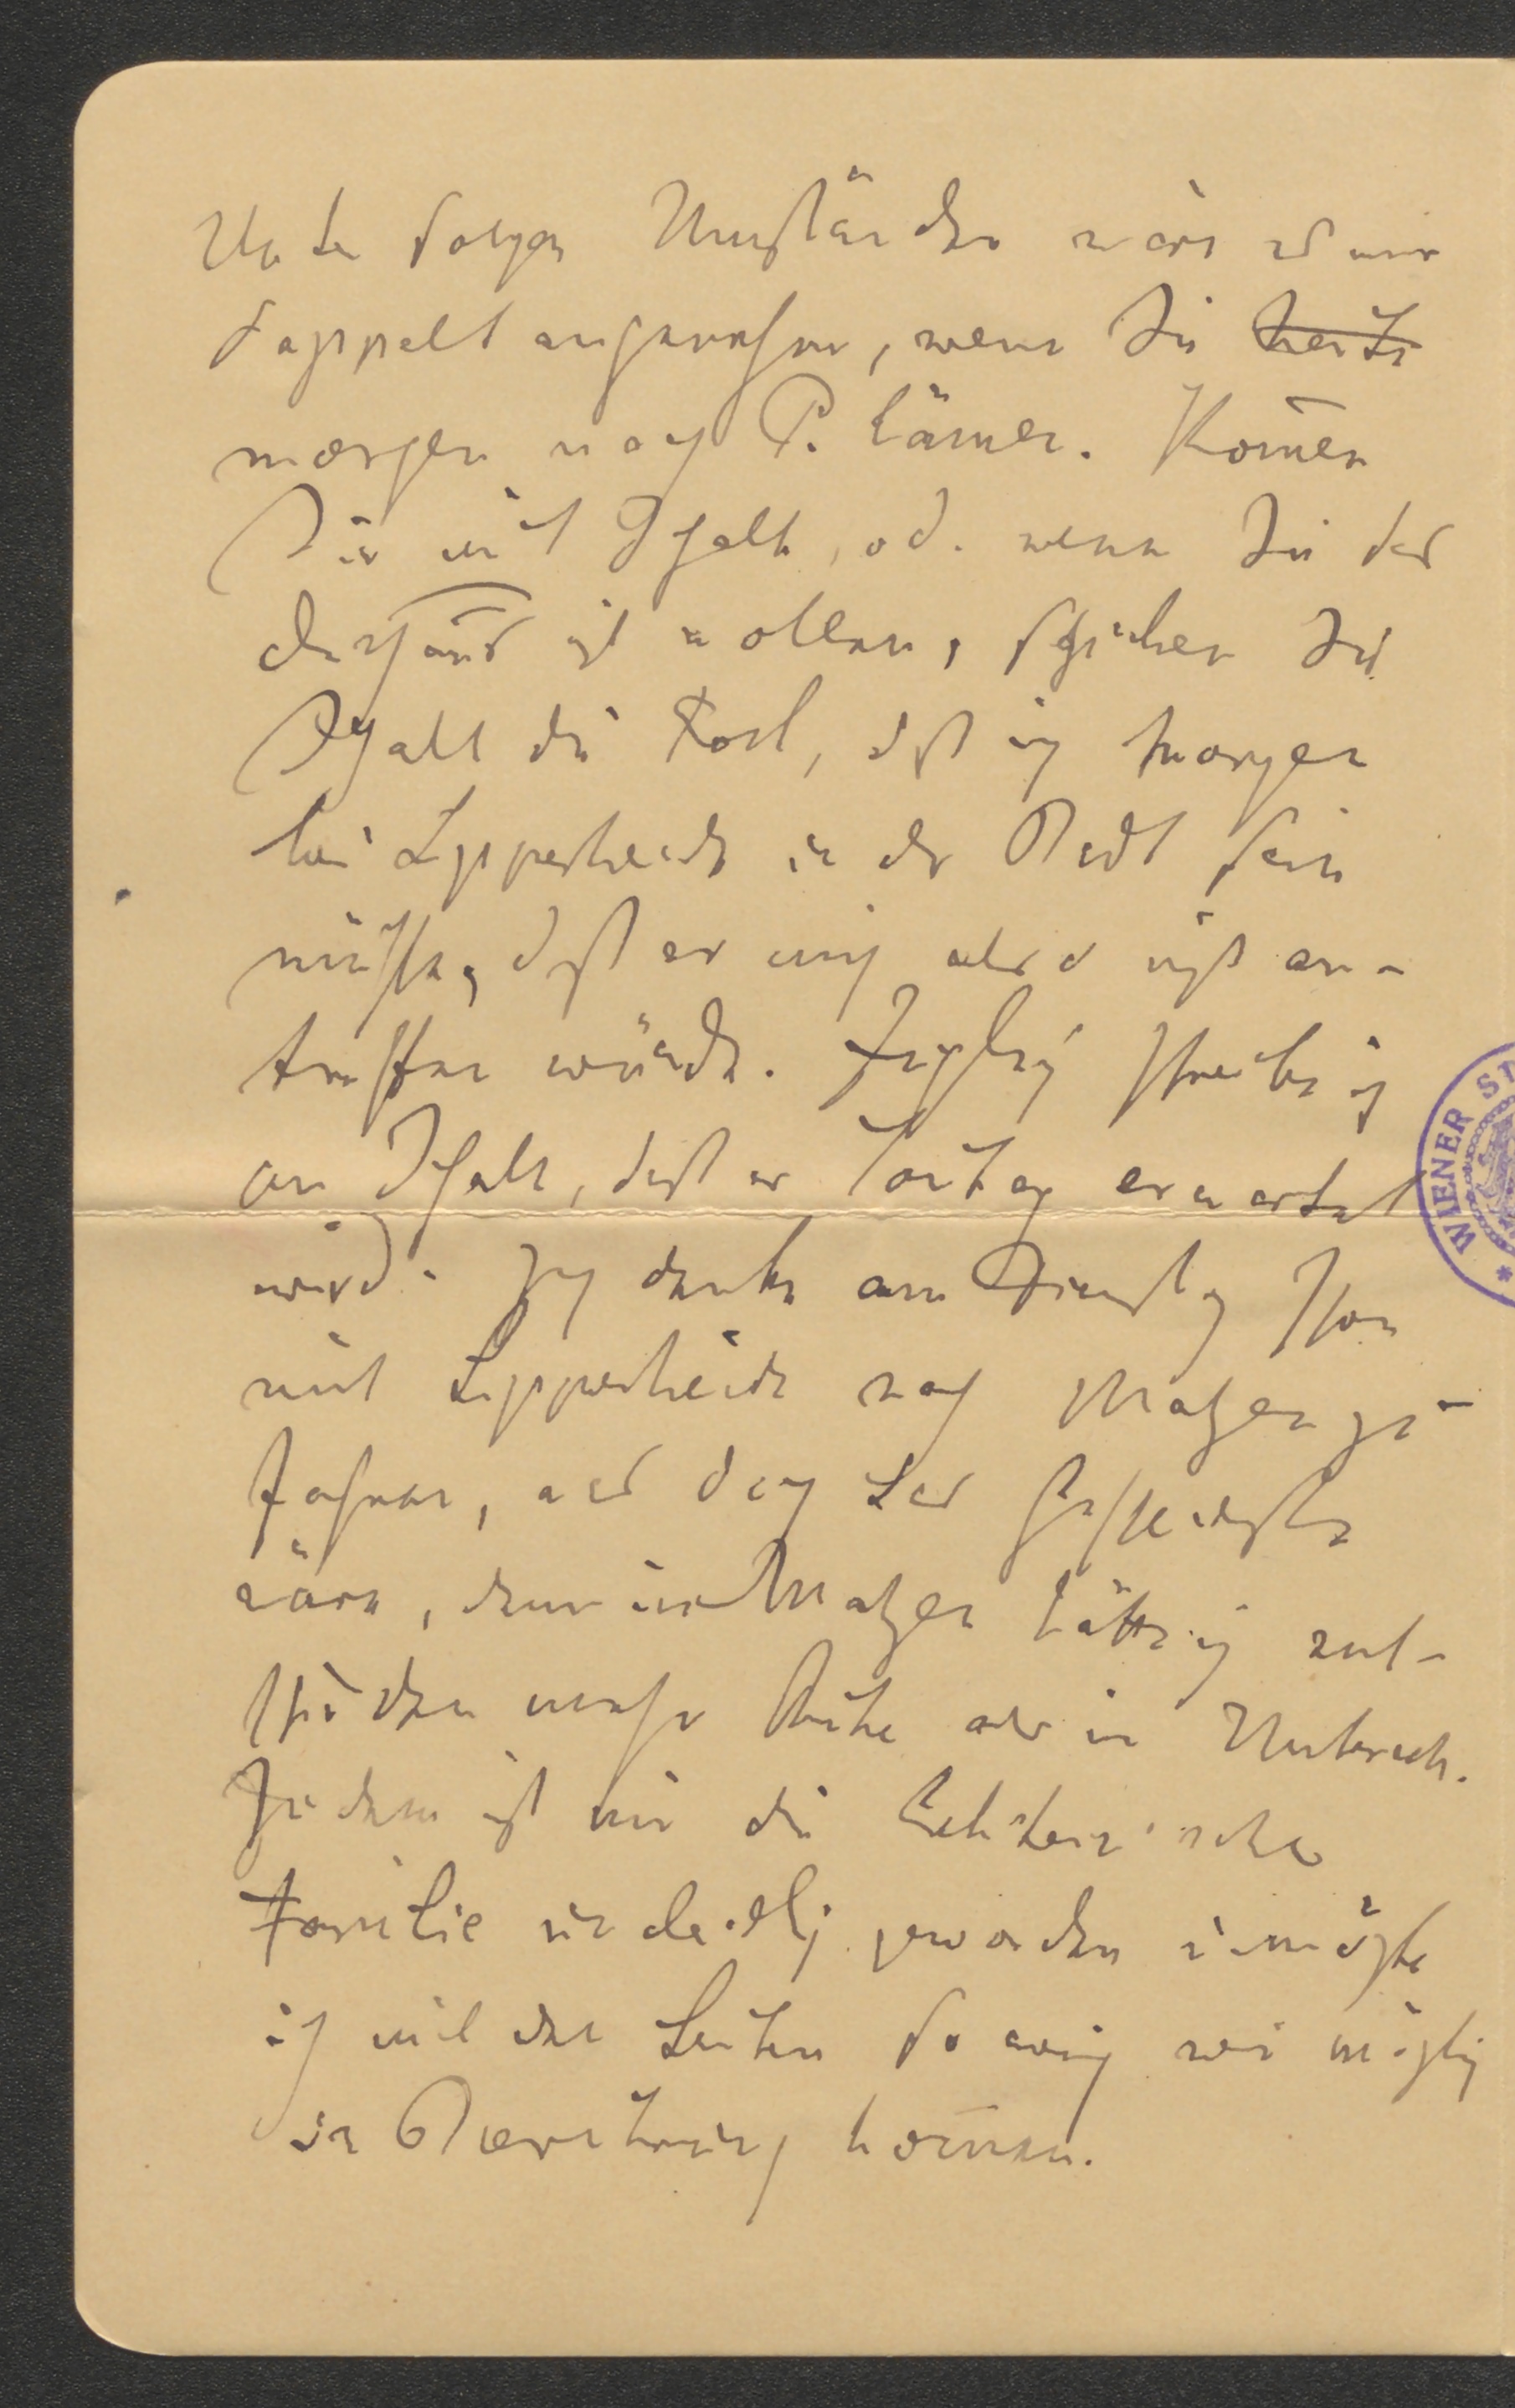 Unter solchen Umständen wäre es mir
doppelt angenehm, wenn Sie heute
morgen nach P. kämen. Kom̄en
Sie mit Schalk, od. wenn Sie das
durchaus nicht wollen, schicken Sie
Schalk die Post, daß ich morgen
bei Lipperheide in der Stadt sein
müßte, daß er mich also nicht an-
treffen würde. Zugleich schreibe ich
an Schalk, daß er Sontag erwartet
wird. Ich denke am Dienstag schon
mit Lipperheide nach Matzen zu
fahren, was doch das Gescheidteste
wäre, denn in Matzen hätte ich ent-
schieden mehr Ruhe als in Unterach.
Zudem ist mir die
Familie widerlich geworden u. möchte
ich mit den Leuten so wenig wie möglich
in Berührung kom̄en.
WIENER ST